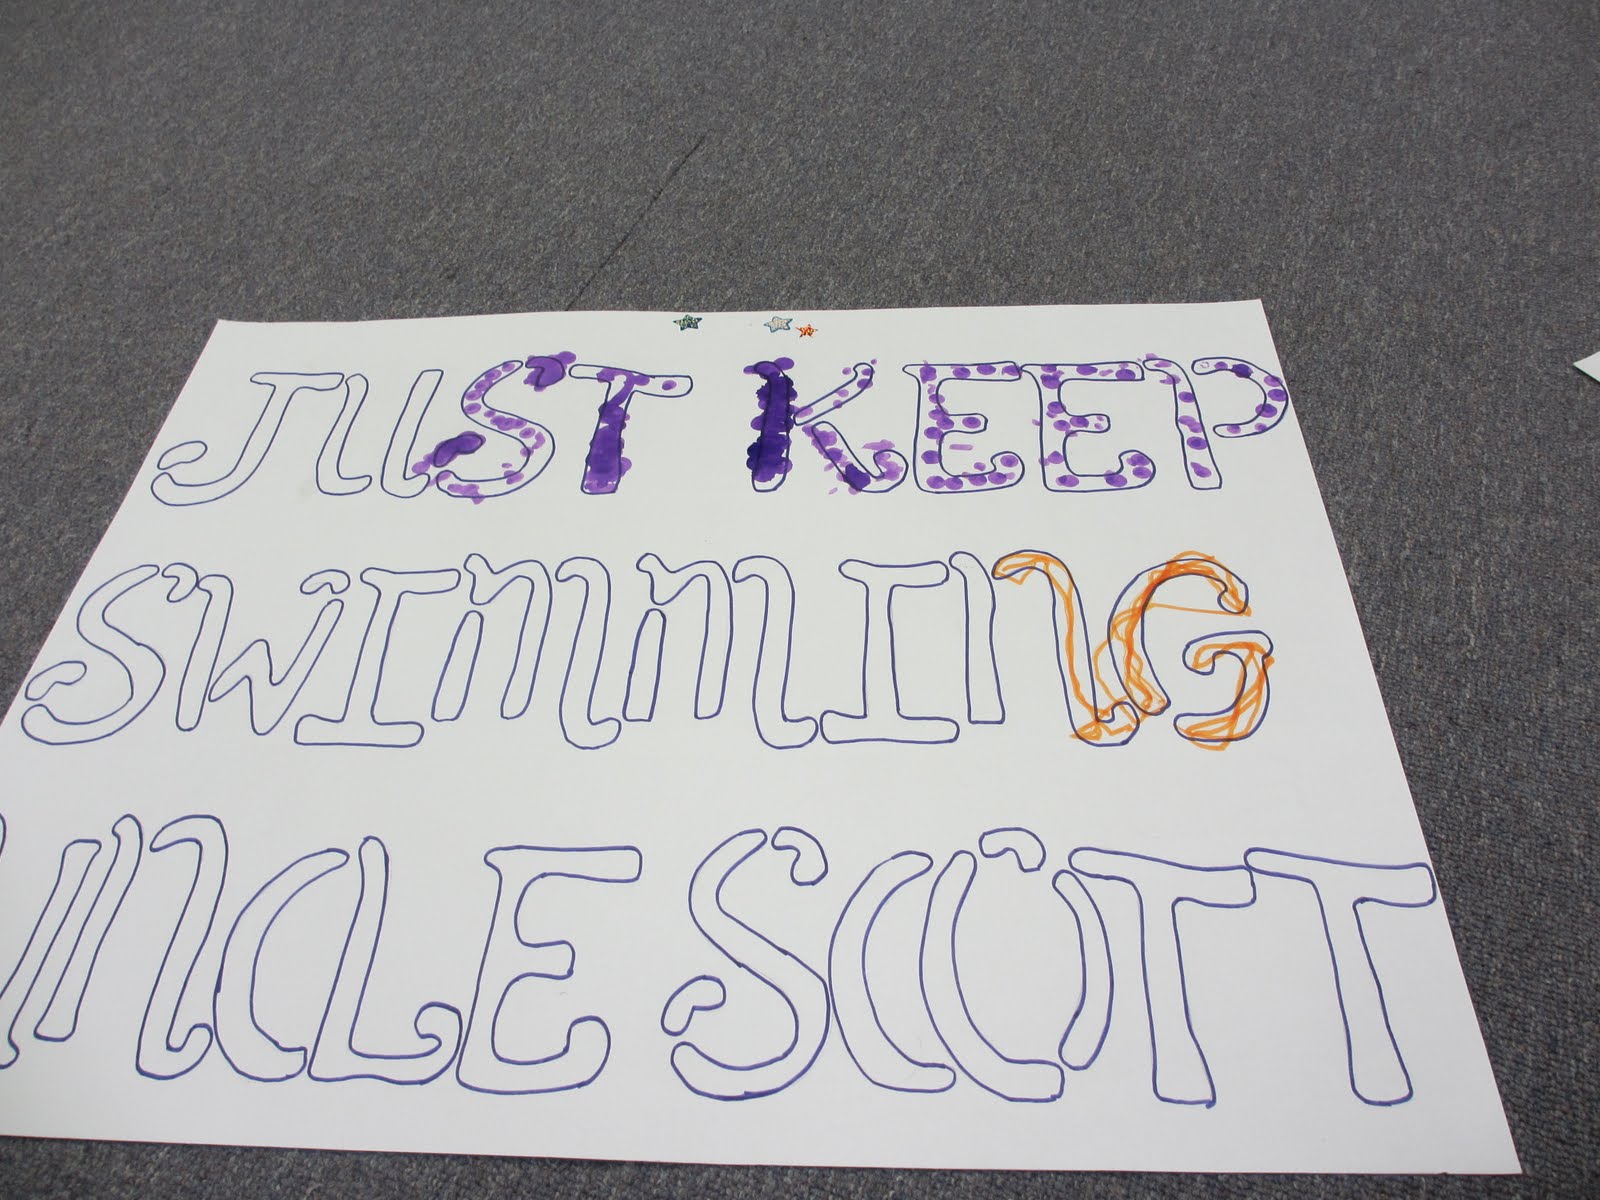 JUST KEEP
SWIMMING
UNCLE SCOTT